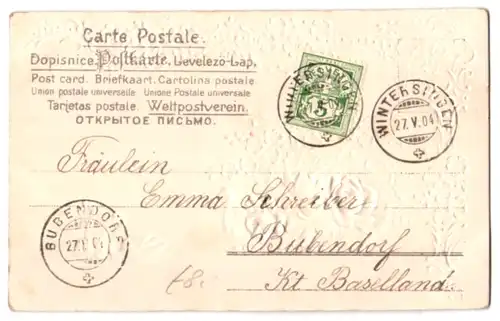 Carte Postale.
Dopisnice. Postkarte. Levelező-Lap.
Post card. Briefkaart. Cartolina postale
Union postale universelle Unione Postale universale
Tarjetas postale. Weltpostverein.
ОТКРЫТОЕ ПИСЬМО.
WINTERSINGEN
5
WINTERSINGEN
27.V.04
Fräulein
Emma Schreiber
Bubendorf
Kt Baselland.
BUBENDORF
27.V.04